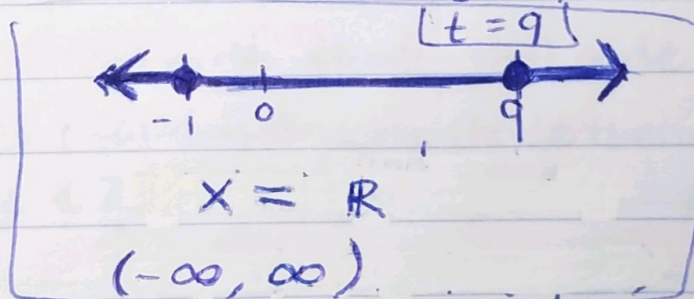 t = 9
-1 0 9
x = ℝ
(-∞, ∞)